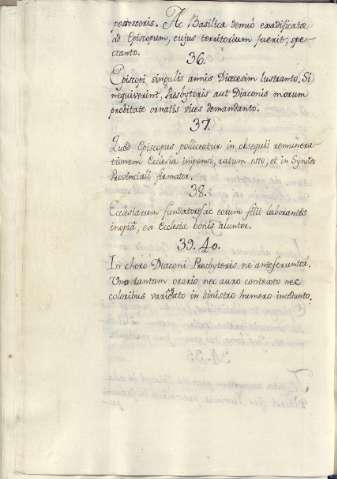 restoris. At Basilica denuo ædificata
ad Episcopum, cujus territorium fuerit, spe-
ctanto.
36.
Episcopi singulis annis Diœcesim lustranto. Si
nequiverint, Presbyteris aut Diaconis morum
probitate ornatis vices demandanto.
37.
Quod Episcopus polliceatur in obsequii remunera-
tionem Ecclesiæ impensi, ratum esto, et in Synodo
Provinciali firmator.
38.
Ecclesiarum fundatores, ac eorum filii laborantes
inopia, ex Ecclesiæ bonis aluntor.
39. 40.
In choro Diaconi Presbyteris ne anteferuntor.
Uno tantum orario nec auro contexto nec
coloribus variato in sinistro humero incedunto.